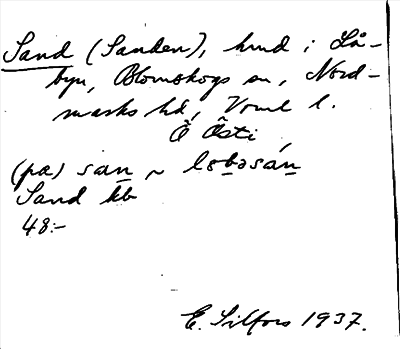 Sand (Sanden), hmd i Lå-
byn, Blomskogs sn, Nord-
marks hd, Vrml l.
Ö Östi
(pæ) san ~ lɛbəsán
Sand kb
48:-
E. Silfors 1937.